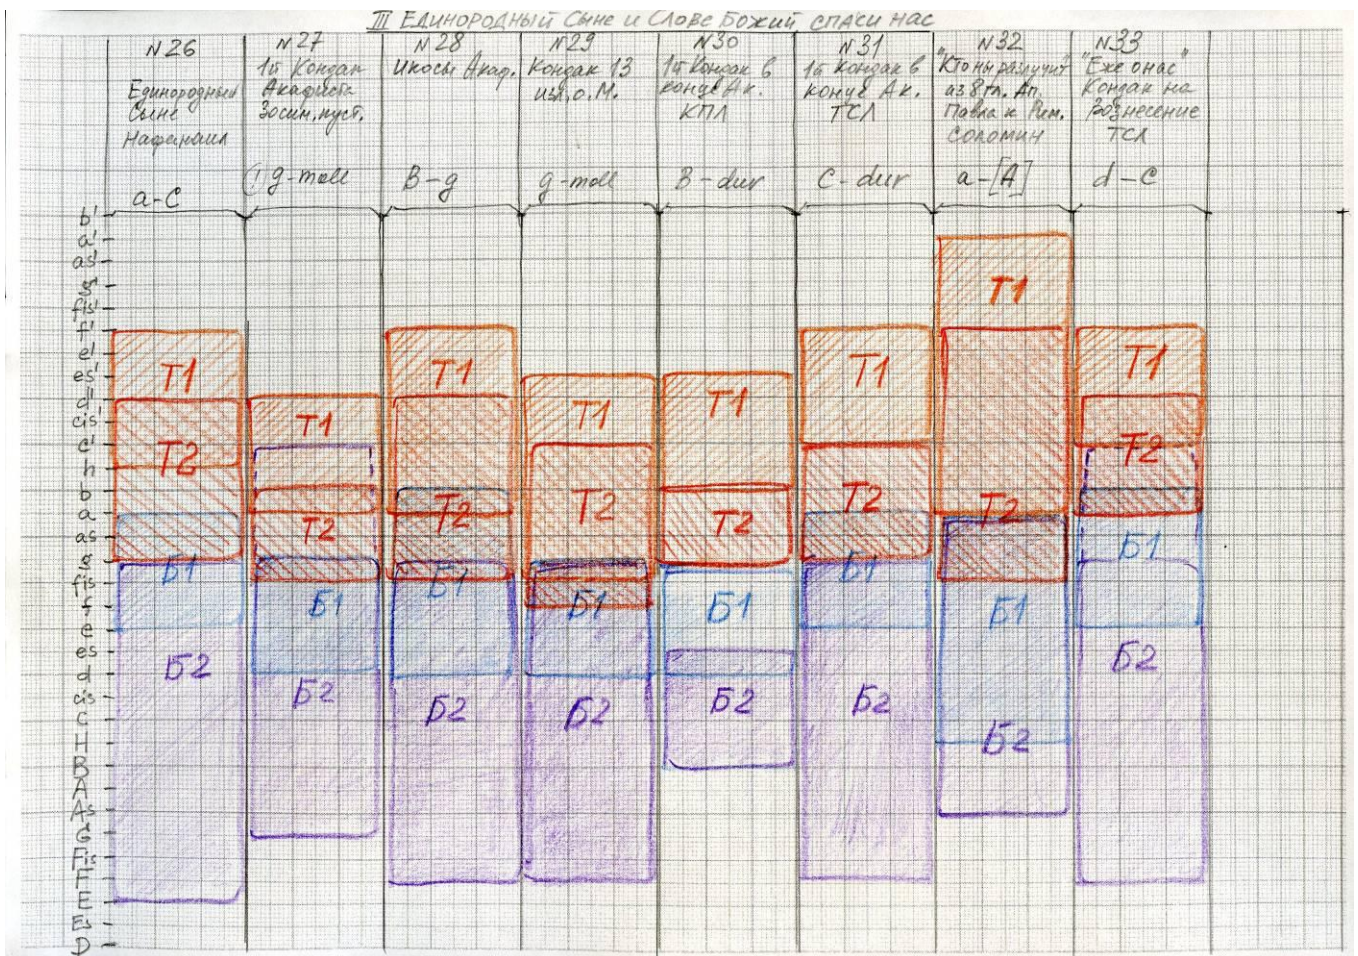 III ЕДИНОРОДНЫЙ СЫНЕ И СЛОВЕ БОЖИЙ СПАСИ НАС
N26
Единородный
Сыне
Нафанаил
a-C
N27
1й Кондак
Акафиста
Зосим. пуст.
① g-moll
N28
Икосы Акаф.
B-g
N29
Кондак 13
g-moll
N30
1й Кондак в
конце Ак.
КПЛ
B-dur
N31
1й Кондак в
конце Ак.
ТСЛ
C-dur
N32
"Кто ны разлучит"
из 8 гл. Ап.
Павла к Рим.
Соломин
a-[A]
N33
"Еже о нас"
Кондак на
Вознесение
ТСЛ
d-C
b'
a'
as'
g'
fis'
f'
e'
es'
d'
cis'
c'
h
b
a
as
g
fis
f
e
es
d
cis
c
H
B
A
As
G
Fis
F
E
Es
D
T1
T2
Б1
Б2
T1
T2
Б1
Б2
T1
T2
Б1
Б2
T1
T2
Б1
Б2
T1
T2
Б1
Б2
T1
T2
Б1
Б2
T1
T2
Б1
Б2
T1
T2
Б1
Б2